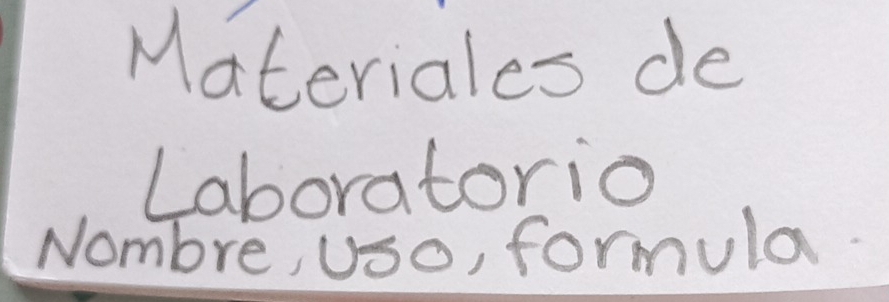 Materiales de
Laboratorio
Nombre, uso, formula.